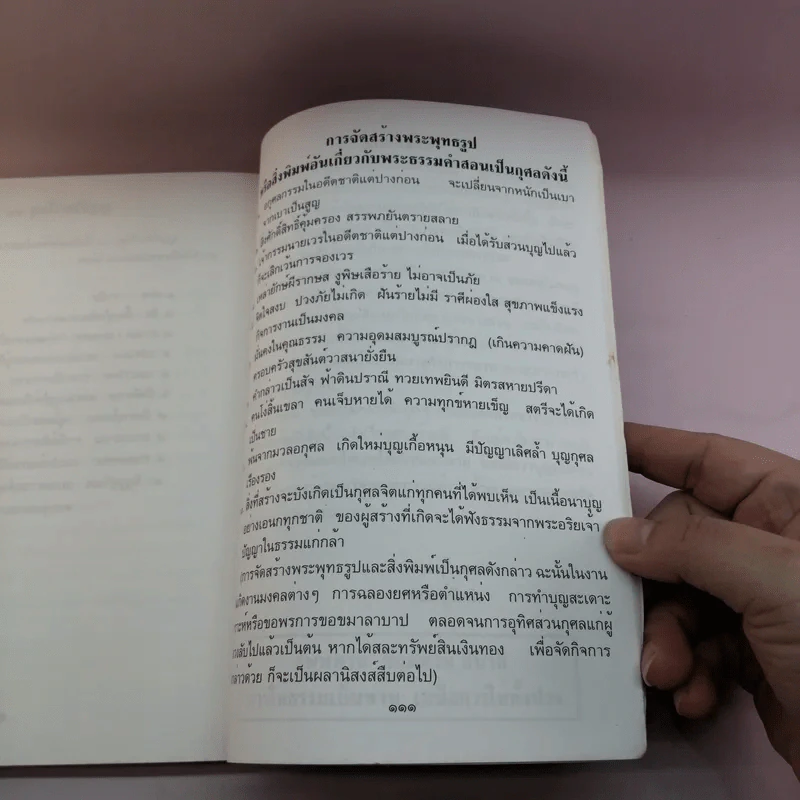 การจัดสร้างพระพุทธรูป
หรือสิ่งพิมพ์อันเกี่ยวกับพระธรรมคำสอนเป็นกุศลดังนี้
อกุศลกรรมในอดีตชาติแต่ปางก่อน จะเปลี่ยนจากหนักเป็นเบา
จากเบาเป็นสูญ
สิ่งศักดิ์สิทธิ์คุ้มครอง สรรพภยันตรายสลาย
เจ้ากรรมนายเวรในอดีตชาติแต่ปางก่อน เมื่อได้รับส่วนบุญไปแล้ว
ก็จะเลิกเว้นการจองเวร
เหล่ายักษ์ผีรากษส งูพิษเสือร้าย ไม่อาจเป็นภัย
จิตใจสงบ ปวงภัยไม่เกิด ฝันร้ายไม่มี ราศีผ่องใส สุขภาพแข็งแรง
กิจการงานเป็นมงคล
มั่นคงในคุณธรรม ความอุดมสมบูรณ์ปรากฏ (เกินความคาดฝัน)
ครอบครัวสุขสันต์วาสนายั่งยืน
คำกล่าวเป็นสัจ ฟ้าดินปราณี ทวยเทพยินดี มิตรสหายปรีดา
คนโง่สิ้นเขลา คนเจ็บหายได้ ความทุกข์หายเข็ญ สตรีจะได้เกิด
เป็นชาย
พ้นจากมวลอกุศล เกิดใหม่บุญเกื้อหนุน มีปัญญาเลิศล้ำ บุญกุศล
เรืองรอง
สิ่งที่สร้างจะบังเกิดเป็นกุศลจิตแก่ทุกคนที่ได้พบเห็น เป็นเนื้อนาบุญ
อย่างเอนกทุกชาติ ของผู้สร้างที่เกิดจะได้ฟังธรรมจากพระอริยเจ้า
ปัญญาในธรรมแก่กล้า
(การจัดสร้างพระพุทธรูปและสิ่งพิมพ์เป็นกุศลดังกล่าว ฉะนั้นในงาน
เกิดงานมงคลต่างๆ การฉลองยศหรือตำแหน่ง การทำบุญสะเดาะ
เคราะห์หรือขอพรการขอขมาลาบาป ตลอดจนการอุทิศส่วนกุศลแก่ผู้
ล่วงลับไปแล้วเป็นต้น หากได้สละทรัพย์สินเงินทอง เพื่อจัดกิจการ
กล่าวด้วย ก็จะเป็นผลานิสงส์สืบต่อไป)
๑๑๑